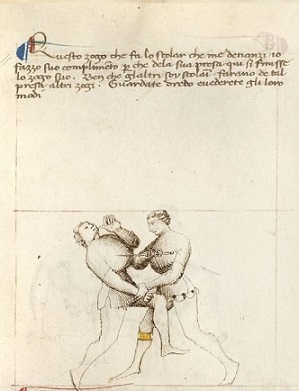 Questo zogo che fa lo scolar che me denanzi io
fazzo suo complimēto p che dela sua presa qui si finisse
lo zogo suo. Ben che gl altri soy scolari farano de tal
presa altri zogi. Guardate dredo e vederete gli loro
modi.